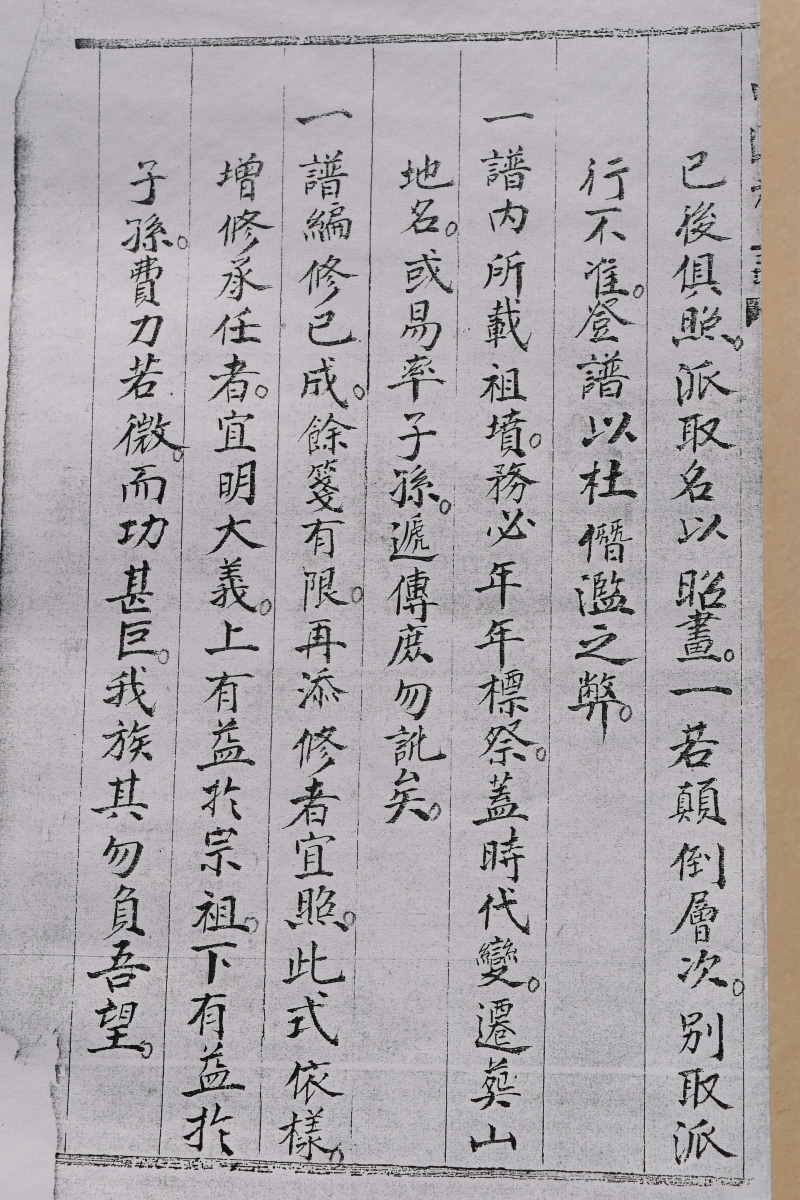 已後俱照。派取名以昭畫。一若顛倒層次。別取派
行不准。登譜以杜僭濫之弊。
一譜内所載祖墳。務必年年標祭。蓋時代變。遷葬山
地名。或易率子孫。遞傳庶勿訛矣。
一譜編修已成。餘箋有限。再添修者宜照。此式依樣。
增修承任者。宜明大義。上有益於宗祖。下有益於
子孫。費力若微。而功甚巨。我族其勿負吾望。